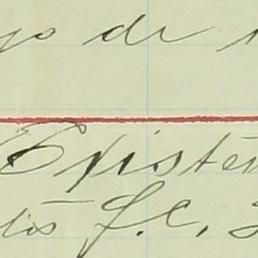 go de
Existen
tos J. C.